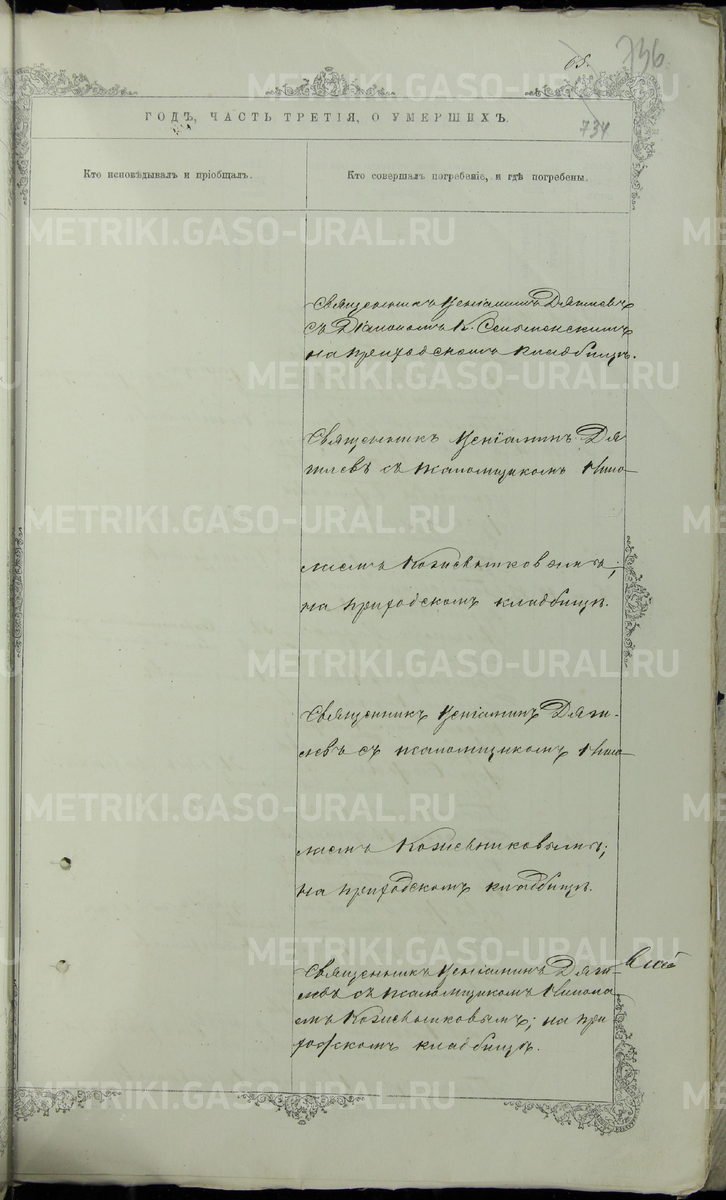 65.
736.
734
ГОДЪ, ЧАСТЬ ТРЕТІЯ, О УМЕРШИХЪ.
Кто исповѣдывалъ и пріобщалъ.
Кто совершалъ погребеніе, и гдѣ погребены.
Священникъ Веніаминъ Дягилевъ
съ Діакономъ К.
на приходскомъ кладбищѣ.
Священникъ Веніаминъ Дя
гилевъ съ псаломщикомъ
Кожевниковымъ;
на приходскомъ кладбищѣ.
Священникъ Веніаминъ Дяги-
левъ съ псаломщикомъ
Кожевниковымъ;
на приходскомъ кладбищѣ.
Священникъ Веніаминъ Дяги-
левъ съ псаломщикомъ
Кожевниковымъ; на при
ходскомъ кладбищѣ.
METRIKI.GASO-URAL.RU